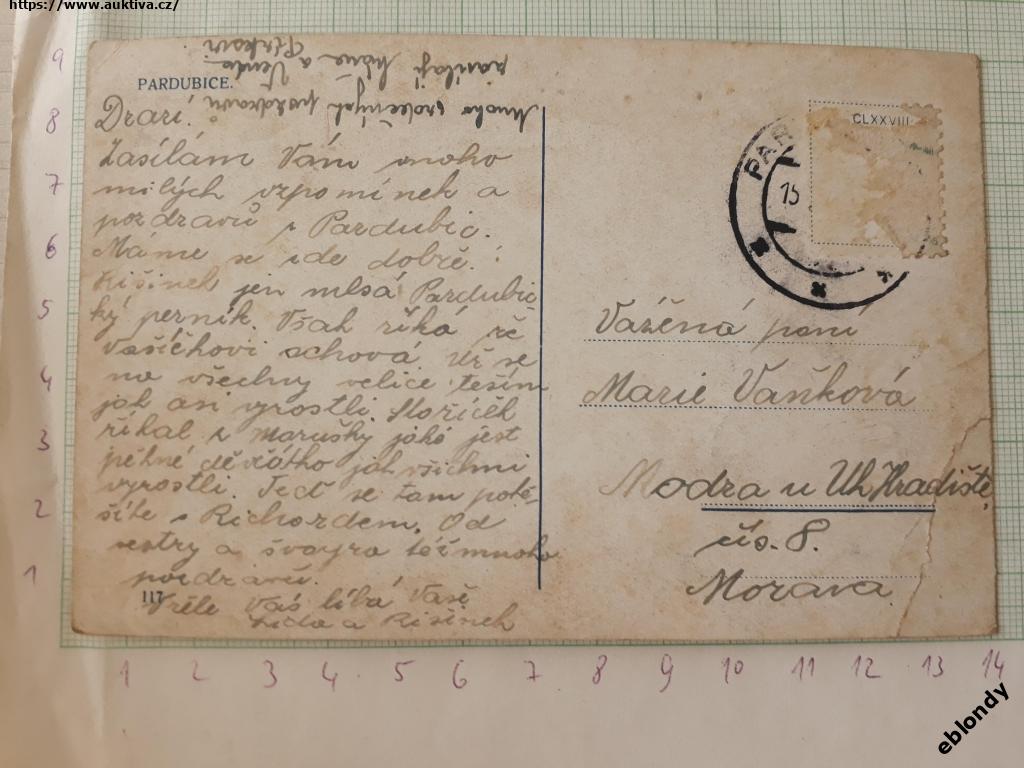 https://www.auktiva.cz/
PARDUBICE.
Drazí!
Zasílám Vám mnoho
milých vzpomínek a
pozdravů z Pardubic.
Máme se zde dobře.
Ríšínek jen mlsá Pardubic
ký perník. Však říká že
Vašíčkovi schová. Už se
na všechny velice těším
jak asi vyrostli.
říkal i Marušky jaké jest
pěkné děvčátko jak všichni
vyrostli. Teď se tam potě-
šíte s Richardem. Od
sestry a švagra též mnoho
pozdravů.
117
Vřele Vás líbá Vaše
Lída a Ríšínek
Mnoho srdečných pozdravů
zasílají a Venda
CLXXVIII
PAR
15
Vážená paní
Marie Vaňková
Modra u Uh. Hradiště,
čís. 8.
Morava
9
8
7
6
5
4
3
2
1
1 2 3 4 5 6 7 8 9 10 11 12 13 14
eblondy